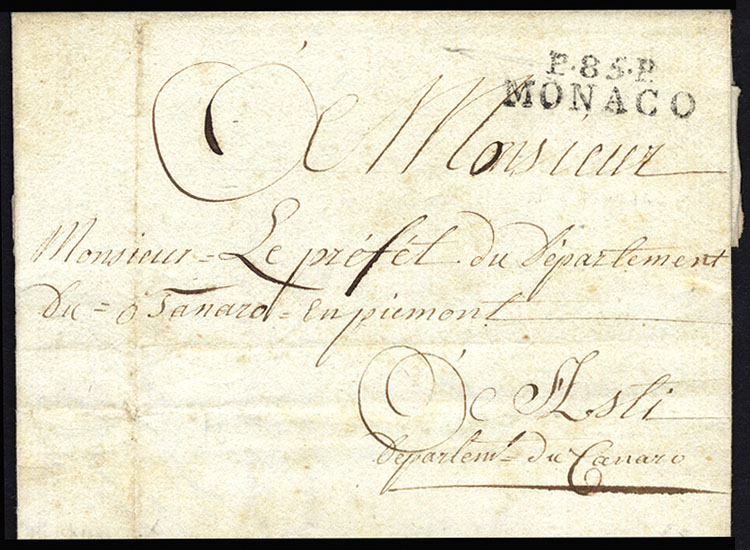 P.85.P.
MONACO
A Monsieur
Monsieur = Le préfét du Département
Du = Tanaro = En piemont
A Asti
Départemt. du Tanaro